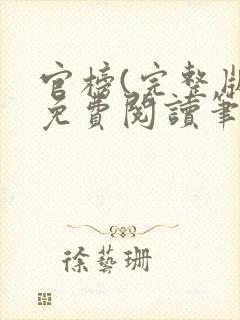 官榜(完整版
免費閱讀筆
徐藝珊